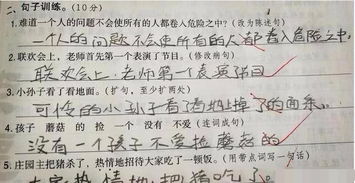 二、句子训练。(10分)
1.难道一个人的问题不会使所有的人都卷入危险之中?(改为陈述句)
一个人的问题不会使所有的人都卷入危险之中,
2.联欢会上,老师首先第一个表演了节目。(修改病句)
联欢会上,老师第一个表演节目
3.小孙子看了看地面。(扩句,至少扩两处)
可怜的小孙子看了看她掉了的面条。
4.孩子 蘑菇 的 捡 一个 没有 不爱(连词成句)
没有一个孩子不爱捡蘑菇的
5.庄园主把猪杀了,热情地招待大家吃了一顿饭。(用带点词写一句话)
大家热情地把猪吃了。